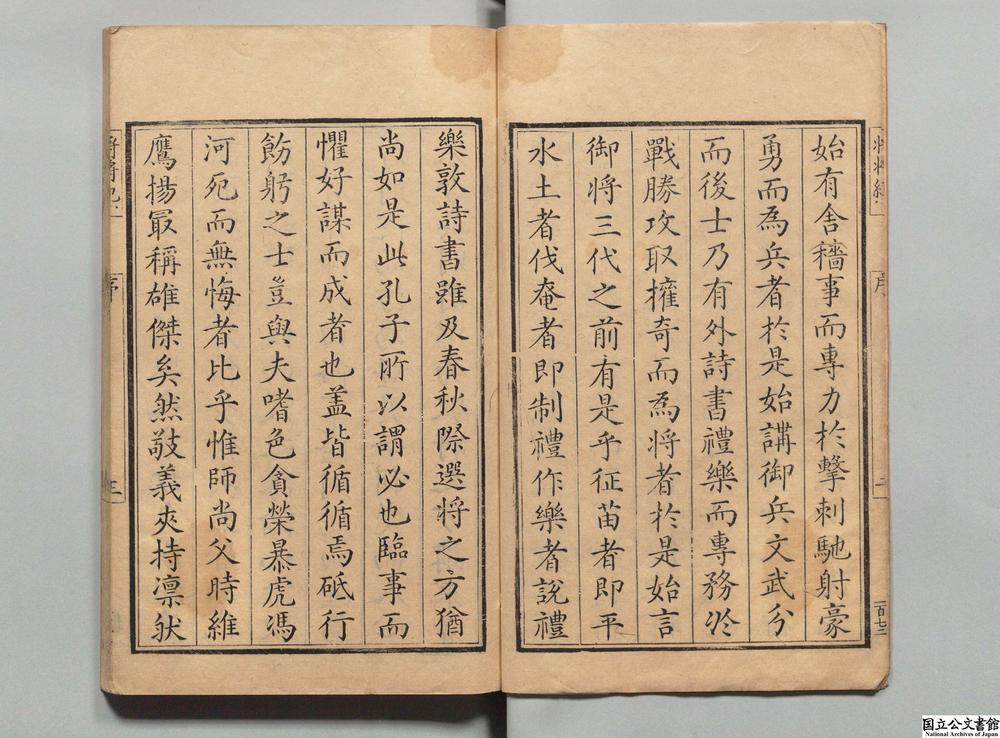 始有舍穡事而專力於擊刺馳射豪
勇而為兵者於是始講御兵文武分
而後士乃有外詩書禮樂而專務於
戰勝攻取權奇而為将者於是始言
御将三代之前有是乎征苗者即平
水土者伐奄者即制禮作樂者說禮
樂敦詩書雖及春秋際選将之方猶
尚如是此孔子所以謂必也臨事而
懼好謀而成者也蓋皆循循焉砥行
飭躬之士豈與夫嗜色貪榮暴虎馮
河死而無悔者比乎惟師尚父時維
鷹揚冣稱雄傑矣然敬義夾持凛肰
序
二
百七二
序
三
国立公文書館
National Archives of Japan